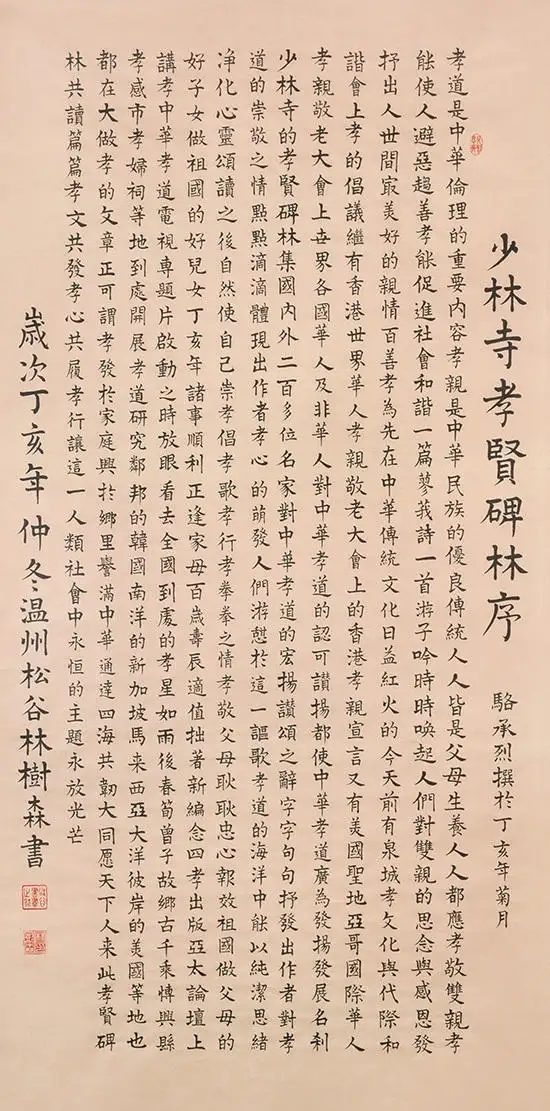 少林寺孝賢碑林序
駱承烈撰於丁亥年菊月
孝道是中華倫理的重要内容孝親是中華民族的優良傳統人人皆是父母生養人人都應孝敬雙親孝
能使人避惡趨善孝能促進社會和諧一篇蓼莪詩一首游子吟時時喚起人們對雙親的思念與感恩發
抒出人世間冣美好的親情百善孝為先在中華傳統文化日益紅火的今天前有泉城孝文化與代際和
諧會上孝的倡議繼有香港世界華人孝親敬老大會上的香港孝親宣言又有美國聖地亞哥國際華人
孝親敬老大會上世界各國華人及非華人對中華孝道的認可讚揚都使中華孝道廣為發揚發展名刹
少林寺的孝賢碑林集國内外二百多位名家對中華孝道的宏揚讚頌之辭字字句句抒發出作者對孝
道的崇敬之情點點滴滴體現出作者孝心的萌發人們游憇於這一謳歌孝道的海洋中能以純潔思緒
净化心靈頌讀之後自然使自己崇孝倡孝歌孝行孝拳拳之情孝敬父母耿耿忠心報效祖國做父母的
好子女做祖國的好兒女丁亥年諸事順利正逢家母百歲壽辰適值拙著新編念四孝出版亞太論壇上
講孝中華孝道電視専題片啟動之時放眼看去全國到處的孝星如雨後春筍曾子故鄉古千乘博興縣
孝感市孝婦祠等地到處開展孝道研究鄰邦的韓國南洋的新加坡馬来西亞大洋彼岸的美國等地也
都在大做孝的文章正可謂孝發於家庭興於鄉里譽滿中華通達四海共韌大同愿天下人来此孝賢碑
林共讀篇篇孝文共發孝心共履孝行讓這一人類社會中永恒的主題永放光芒
歲次丁亥年仲冬温州松谷林樹森書